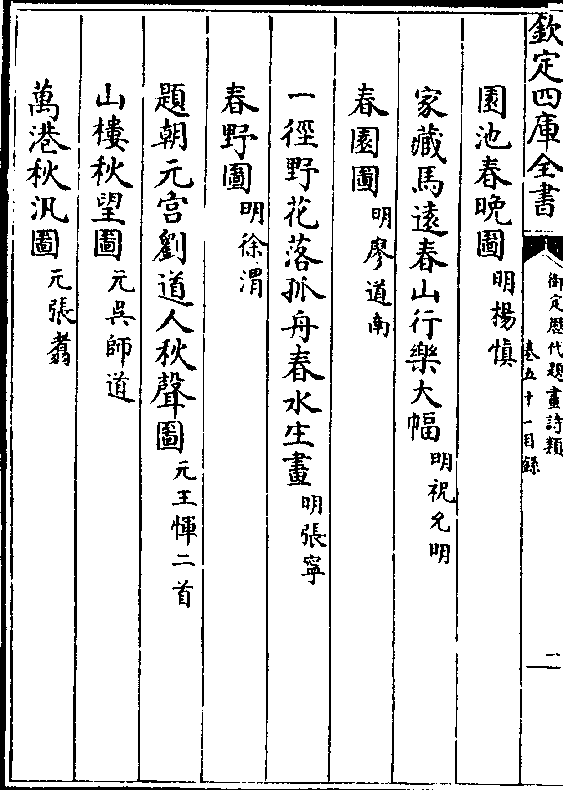 欽定四庫全書
御定歷代題畫詩類
卷五十一目錄
二
園池春晚圖 明楊慎
家藏馬遠春山行樂大幅 明祝允明
春園圖 明廖道南
一徑野花落孤舟春水生畫 明張寧
春野圖 明徐渭
題朝元宫劉道人秋聲圖 元王惲二首
山樓秋望圖 元吳師道
萬港秋汎圖 元張翥